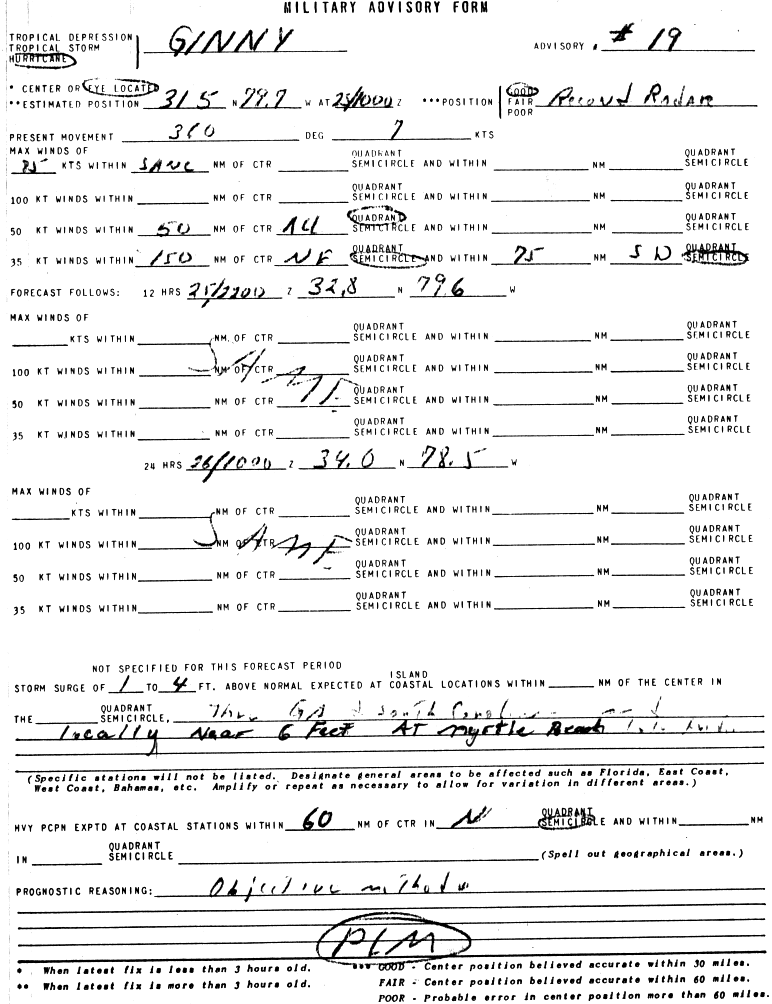 MILITARY ADVISORY FORM
TROPICAL DEPRESSION
TROPICAL STORM GINNY ADVISORY # 19
HURRICANE
* CENTER OR EYE LOCATED
**ESTIMATED POSITION 31.5 N 79.7 W AT 25/1000 Z ***POSITION GOOD FAIR POOR Recond Radar
PRESENT MOVEMENT 360 DEG 7 KTS
MAX WINDS OF QUADRANT QUADRANT
KTS WITHIN NM OF CTR SEMICIRCLE AND WITHIN NM SEMICIRCLE
QUADRANT QUADRANT
100 KT WINDS WITHIN NM OF CTR SEMICIRCLE AND WITHIN NM SEMICIRCLE
QUADRANT QUADRANT
50 KT WINDS WITHIN 50 NM OF CTR All SEMICIRCLE AND WITHIN NM SEMICIRCLE
QUADRANT QUADRANT
35 KT WINDS WITHIN 150 NM OF CTR NE SEMICIRCLE AND WITHIN 75 NM SW SEMICIRCLE
FORECAST FOLLOWS: 12 HRS 25/2200 Z 32.8 N 79.6 W
MAX WINDS OF QUADRANT QUADRANT
KTS WITHIN NM OF CTR SEMICIRCLE AND WITHIN NM SEMICIRCLE
QUADRANT QUADRANT
100 KT WINDS WITHIN NM OF CTR SEMICIRCLE AND WITHIN NM SEMICIRCLE
SAME
QUADRANT QUADRANT
50 KT WINDS WITHIN NM OF CTR SEMICIRCLE AND WITHIN NM SEMICIRCLE
QUADRANT QUADRANT
35 KT WINDS WITHIN NM OF CTR SEMICIRCLE AND WITHIN NM SEMICIRCLE
24 HRS 26/1000 Z 34.0 N 78.5 W
MAX WINDS OF QUADRANT QUADRANT
KTS WITHIN NM OF CTR SEMICIRCLE AND WITHIN NM SEMICIRCLE
QUADRANT QUADRANT
100 KT WINDS WITHIN NM OF CTR SEMICIRCLE AND WITHIN NM SEMICIRCLE
SAME
QUADRANT QUADRANT
50 KT WINDS WITHIN NM OF CTR SEMICIRCLE AND WITHIN NM SEMICIRCLE
QUADRANT QUADRANT
35 KT WINDS WITHIN NM OF CTR SEMICIRCLE AND WITHIN NM SEMICIRCLE
NOT SPECIFIED FOR THIS FORECAST PERIOD
ISLAND
STORM SURGE OF 1 TO 4 FT. ABOVE NORMAL EXPECTED AT COASTAL LOCATIONS WITHIN NM OF THE CENTER IN
QUADRANT
THE SEMICIRCLE, GA South
locally Near 6 Feet At Myrtle Beach
(Specific stations will not be listed. Designate general areas to be affected such as Florida, East Coast,
West Coast, Bahamas, etc. Amplify or repeat as necessary to allow for variation in different areas.)
QUADRANT
HVY PCPN EXPTD AT COASTAL STATIONS WITHIN 60 NM OF CTR IN N SEMICIRCLE AND WITHIN NM
QUADRANT
IN SEMICIRCLE (Spell out geographical areas.)
PROGNOSTIC REASONING: Objective methods
PLM
* When latest fix is less than 3 hours old. *** GOOD - Center position believed accurate within 30 miles.
** When latest fix is more than 3 hours old. FAIR - Center position believed accurate within 60 miles.
POOR - Probable error in center position more than 60 miles.